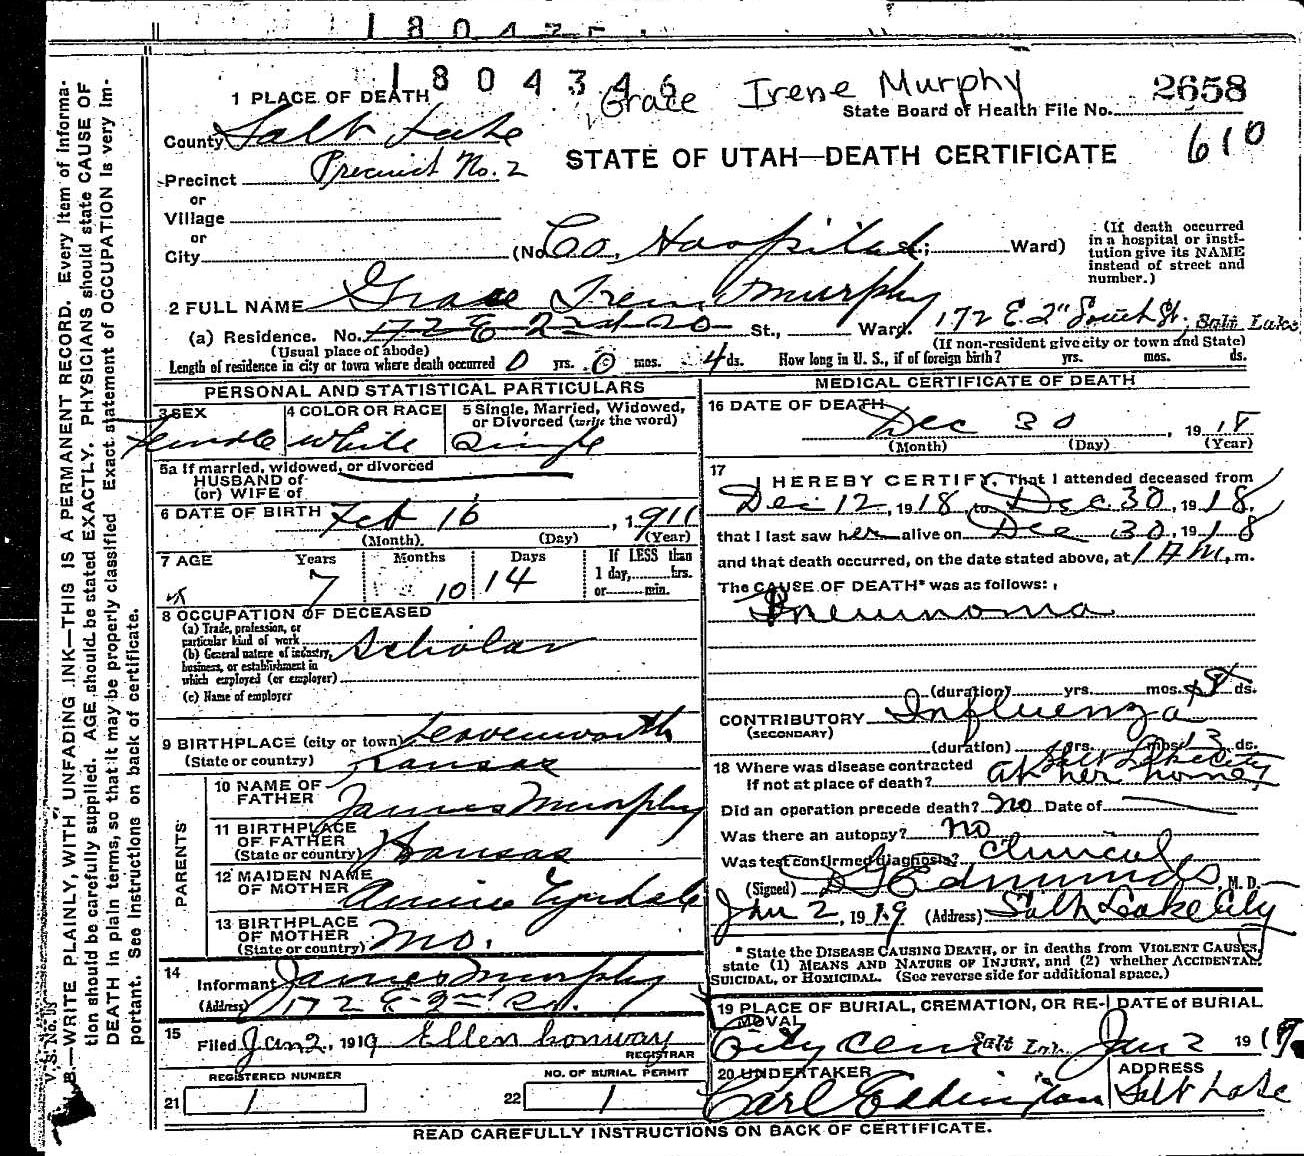 1804346
Grace Irene Murphy
2658
1 PLACE OF DEATH
State Board of Health File No.
County Salt Lake
STATE OF UTAH—DEATH CERTIFICATE
610
Precinct Precinct No. 2
or
Village
or
City (No. Co. Hospital St.; Ward)
(If death occurred in a hospital or insti-
tution give its NAME
instead of street and
number.)
2 FULL NAME Grace Irene Murphy
(a) Residence. No. 172 E 2nd So St., Ward. 172 E. 2" South St., Salt Lake
(Usual place of abode)
(If non-resident give city or town and State)
Length of residence in city or town where death occurred 0 yrs. 0 mos. 4 ds. How long in U. S., if of foreign birth? yrs. mos. ds.
PERSONAL AND STATISTICAL PARTICULARS
3 SEX Female
4 COLOR OR RACE White
5 Single, Married, Widowed,
or Divorced (write the word)
Single
5a If married, widowed, or divorced
HUSBAND of
(or) WIFE of
6 DATE OF BIRTH Feb 16, 1911
(Month) (Day) (Year)
7 AGE Years 7 Months 10 Days 14
If LESS than
1 day, hrs.
or min.
8 OCCUPATION OF DECEASED
(a) Trade, profession, or
particular kind of work Scholar
(b) General nature of industry,
business, or establishment in
which employed (or employer)
(c) Name of employer
9 BIRTHPLACE (city or town) Leavenworth
(State or country) Kansas
PARENTS
10 NAME OF
FATHER James Murphy
11 BIRTHPLACE
OF FATHER
(State or country) Kansas
12 MAIDEN NAME
OF MOTHER Annie Tyndale
13 BIRTHPLACE
OF MOTHER
(State or country) Mo.
14
Informant James Murphy
(Address) 172 E-2nd So.
15
Filed Jan 2, 1919 Ellen Conway
REGISTRAR
REGISTERED NUMBER
21 1
NO. OF BURIAL PERMIT
22 1
MEDICAL CERTIFICATE OF DEATH
16 DATE OF DEATH
Dec 30, 1918
(Month) (Day) (Year)
17
I HEREBY CERTIFY, That I attended deceased from
Dec 12, 1918, to Dec. 30, 1918.
that I last saw her alive on Dec 30, 1918
and that death occurred, on the date stated above, at 1 A.M. m.
The CAUSE OF DEATH* was as follows:
Pneumonia
(duration) yrs. mos. ds.
CONTRIBUTORY Influenza
(SECONDARY)
(duration) yrs. mos. 13 ds.
18 Where was disease contracted Salt Lake City
If not at place of death? At her home
Did an operation precede death? No Date of
Was there an autopsy? No
Was test confirmed diagnosis? Clinical
(Signed) Edmunds M. D.
Jan 2, 1919 (Address) Salt Lake City
* State the DISEASE CAUSING DEATH, or in deaths from VIOLENT CAUSES,
state (1) MEANS AND NATURE OF INJURY, and (2) whether ACCIDENTAL,
SUICIDAL, or HOMICIDAL. (See reverse side for additional space.)
19 PLACE OF BURIAL, CREMATION, OR RE-
MOVAL
City Cem Salt Lak.
DATE of BURIAL
Jan 2 1919
20 UNDERTAKER
Carl Eddington
ADDRESS
Salt Lake
READ CAREFULLY INSTRUCTIONS ON BACK OF CERTIFICATE.
V. S. No.
B.—WRITE PLAINLY, WITH UNFADING INK—THIS IS A PERMANENT RECORD. Every Item of Informa-
tion should be carefully supplied. AGE should be stated EXACTLY. PHYSICIANS should state CAUSE OF
DEATH in plain terms, so that it may be properly classified Exact statement of OCCUPATION is very im-
portant. See instructions on back of certificate.